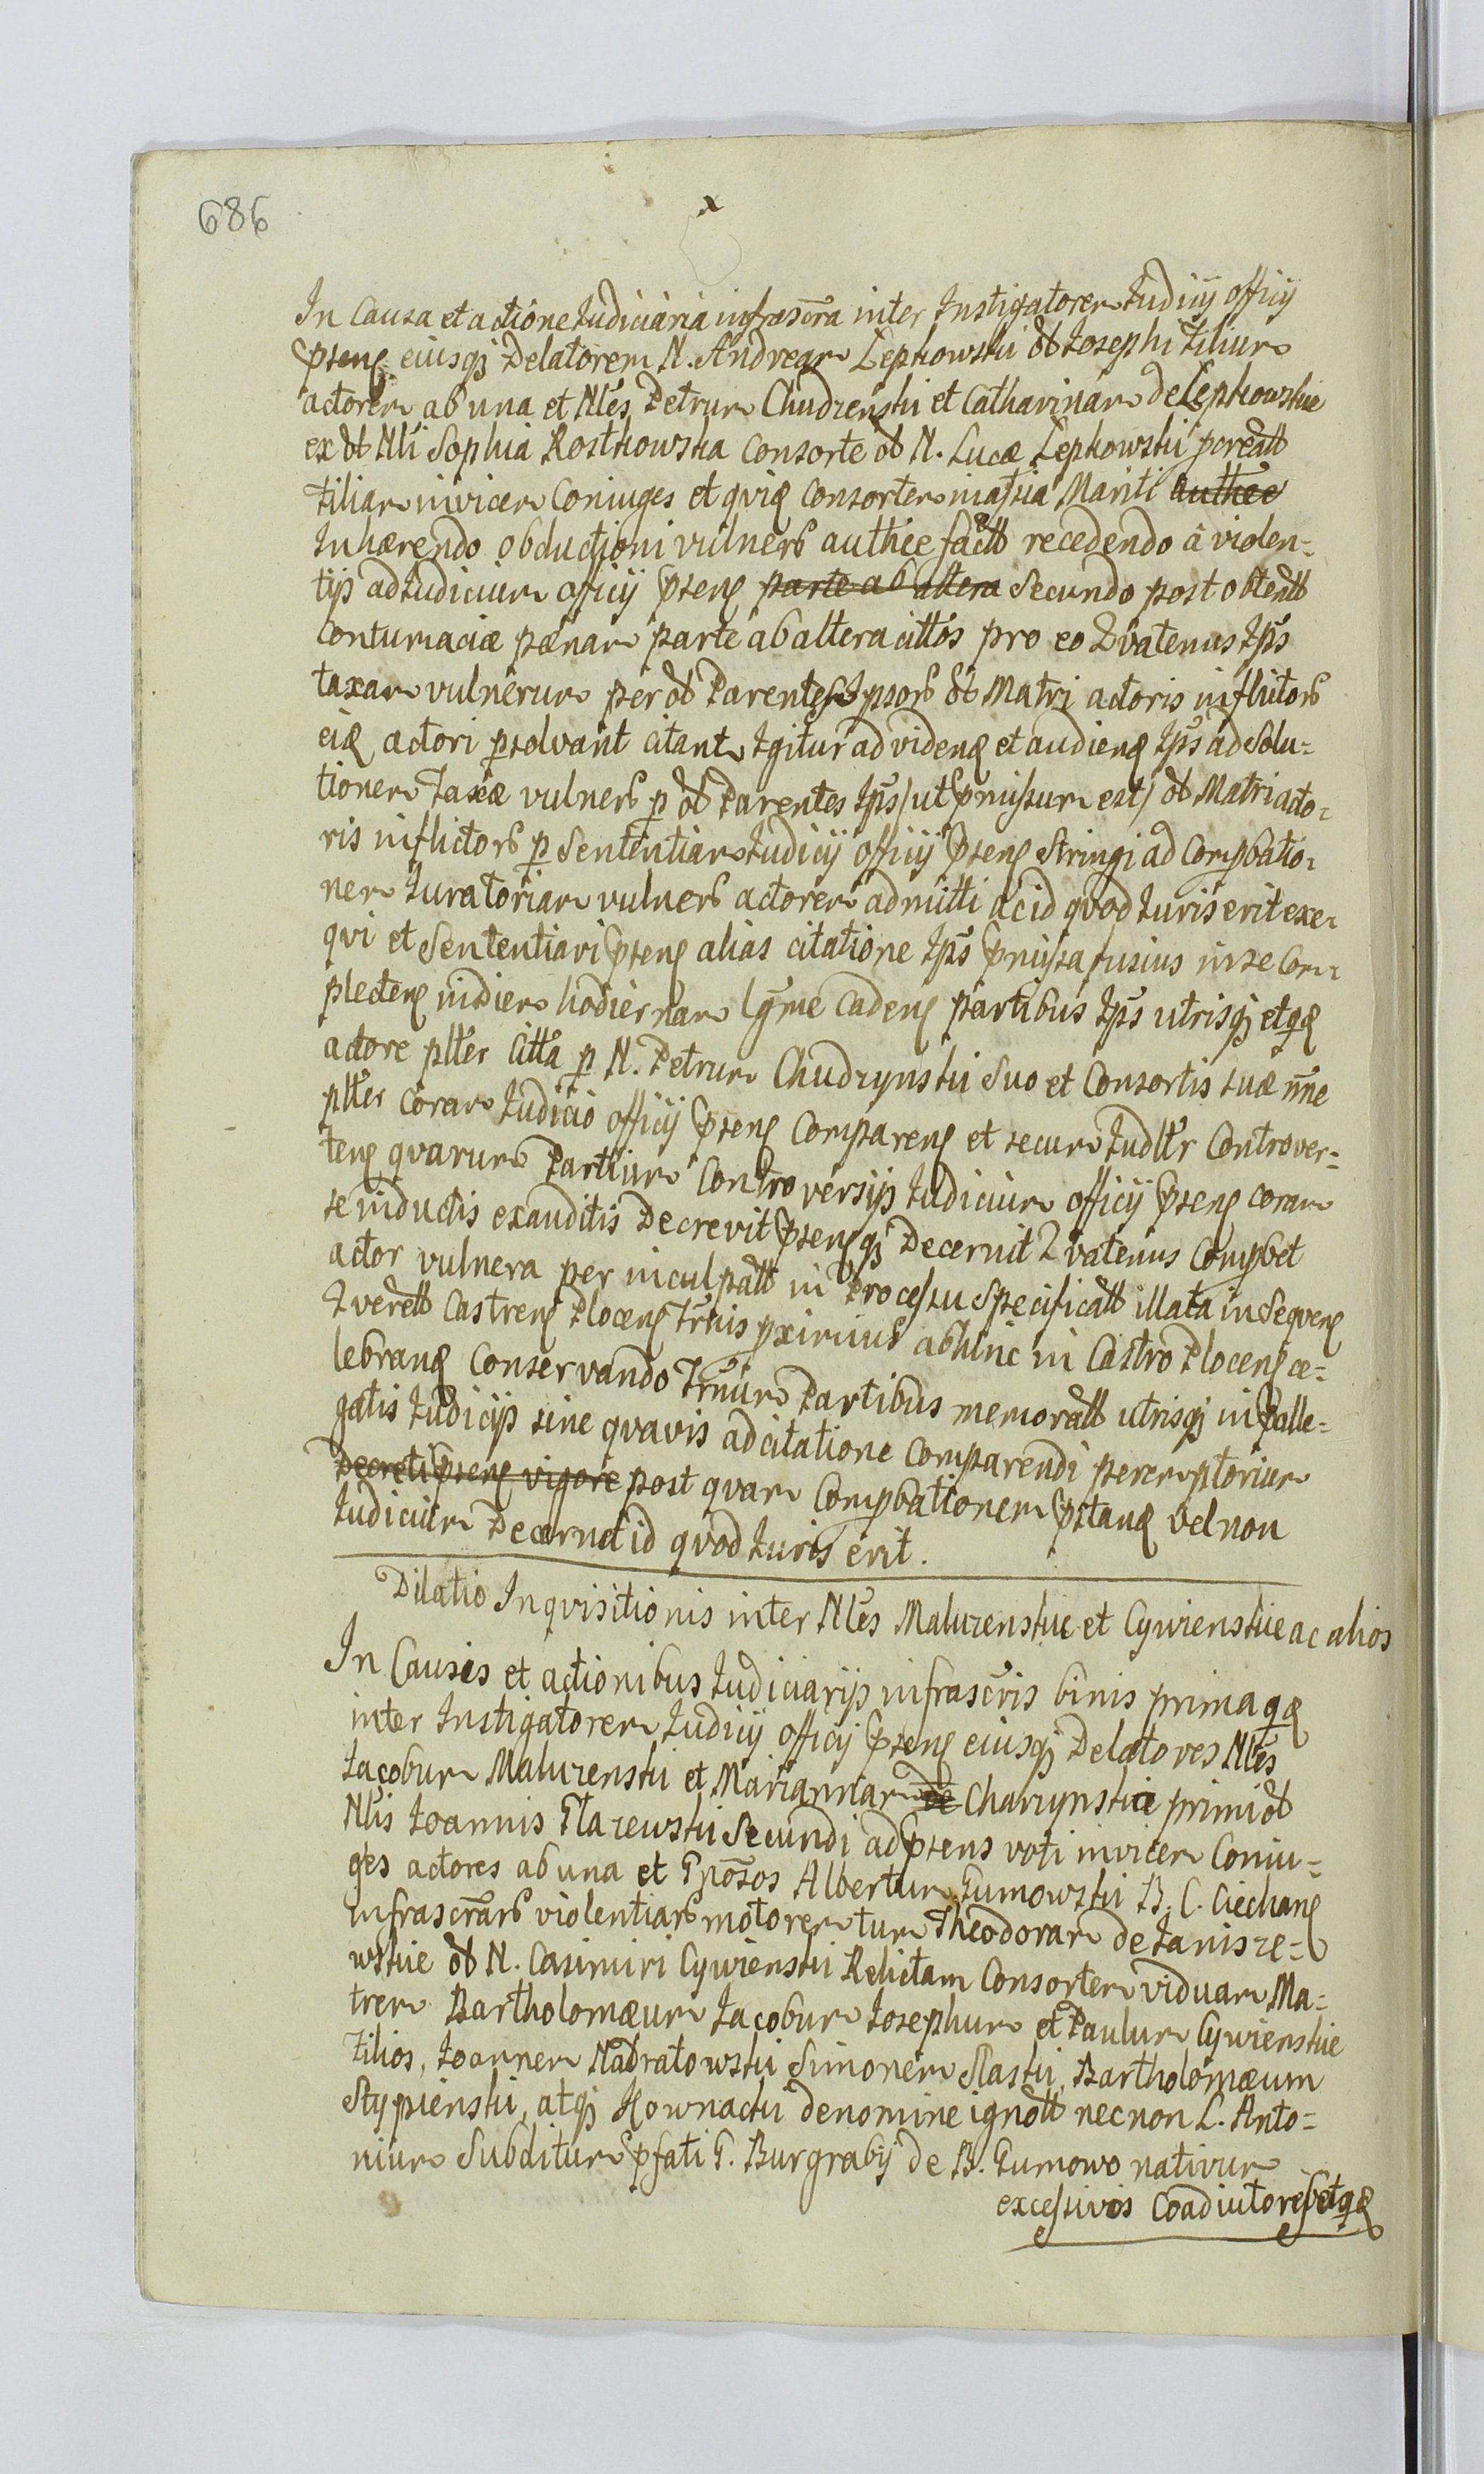 686
x
In Causa et actione Judiciaria infrascra inter Instigatorem Judicij officij
pteng eiusqj Delatorem N. Andream Lepkowski olt Josephi Filium
actorem ab una et Nles Petrum Chudzenski et Catharinam de Lepkowskie
ex olt Nli Sophia Rostkowska Consorte olt N. Lucæ Lepkowski pcreatt
Filiam invicem Coniuges et qvię Consortem in assia Mariti authee
Inhærendo obductioni vulner authee fact recedendo â violen=
tijs ad Judicium officij pteng parte ab altera Secundo post obtent
contumaciæ pænam parte ab altera cittos pro eo Qvatenus Ips
taxam vulnerum per olt Parentes Ipsor olt Matri actoris inflictor
eię actori psolvant citant Igitur ad videnę et audienę Ips ad Solu=
tionem Taxæ vulner p olt Parentes Ips/ut pmissum est/ olt Matri acto=
ris inflictor p Sententiam Judicij officij pteng Stringi ad Compbatio=
nem Juratoriam vulner actorem admitti ac id qvod Juris erit exe=
qvi et Sententiari pteng alias citatione Ips pmissa fusius in se Com=
plecteng in diem hodiernam lgme cadeng Partibus Ips utrisqj etqę
actore plter Citta p N. Petrum Chudzynski Suo et Consortis suæ nne
plter coram Judicio officij pteng Compareng et secum Judltr Controver=
teng qvarum Partium Controversijs Judicium officij pteng coram
se inductis exauditis Decrevit ptengqj Decernit Qvatenus Compbet
actor vulnera per inculpatt in Processu Specificatt illata in Seqveng
Qverell Castreng Ploceng Trnis pximius abhinc in Castro Ploceng ce=
lebranę Conservando Trnum Partibus memoratt utrisqj in palle=
gatis Judicijs sine qvavis adcitatione Comparendi peremptorium
Decreti pteng vigore post qvam Compbationem pstanę vel non
Judicium Decernet id qvod Juris erit.
Dilatio Inqvisitionis inter Nles Maluzenskie et Cywienskie ac alios
In Causis et actionibus Judiciarijs infrascris binis prima qę
inter Instigatorem Judicij officij pteng eiusqj Delatores Nles
Jacobum Maluzenski et Mariannam de Charzynskie primi olt
Nlis Joannis Głazewski Secundi ad ptens voti invicem Coniu=
ges actores ab una et Gnosos Albertum Gumowski B. C. Ciechang
infrascrar violentiar motorem tum Theodoram de Janisze=
wskie olt N. Casimiri Cywienski Relictam Consortem viduam Ma=
trem Bartholomæum Jacobum Josephum et Paulum Cywienskie
Filios, Joannem Nadratowski Simonem Slaski, Bartholomæum
Stypienski, atqj Kownacki de nomine ignott necnon L. Anto=
nium Subditum pfati G. Burgrabij de B. Gumowo nativum
excessivos Coadiutores etqę